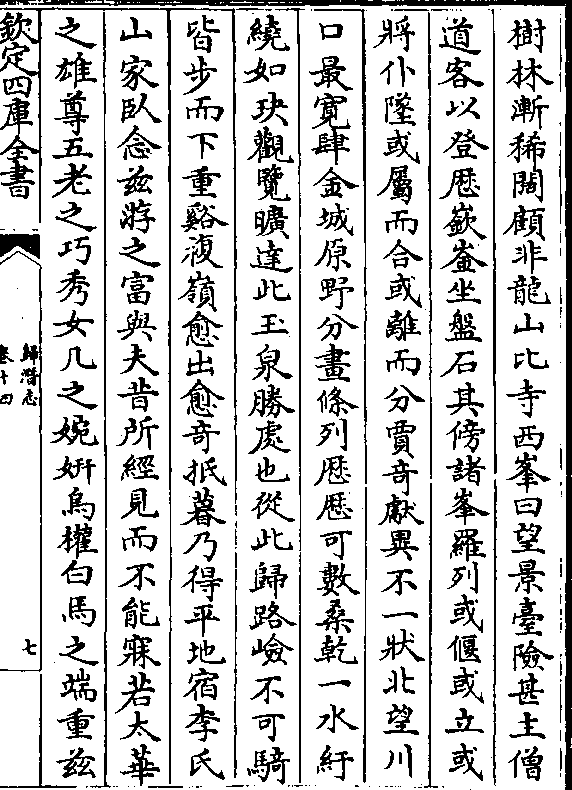 樹林漸稀闊顧非龍山比寺西峯曰望景臺險甚主僧
道客以登歴嶔崟坐盤石其傍諸峯羅列或偃或立或
將仆墜或屬而合或離而分賈竒獻異不一狀北望川
口最寛肆金城原野分畫條列歴歴可數桑乾一水紆
繞如玦觀覽曠達此玉泉勝處也從此歸路嶮不可騎
皆步而下重谿複嶺愈出愈竒抵暮乃得平地宿李氏
山家卧念兹游之富與夫昔所經見而不能寐若太華
之雄尊五老之巧秀女几之婉妍烏權白馬之端重兹
欽定四庫全書
歸潛志
卷十四
七